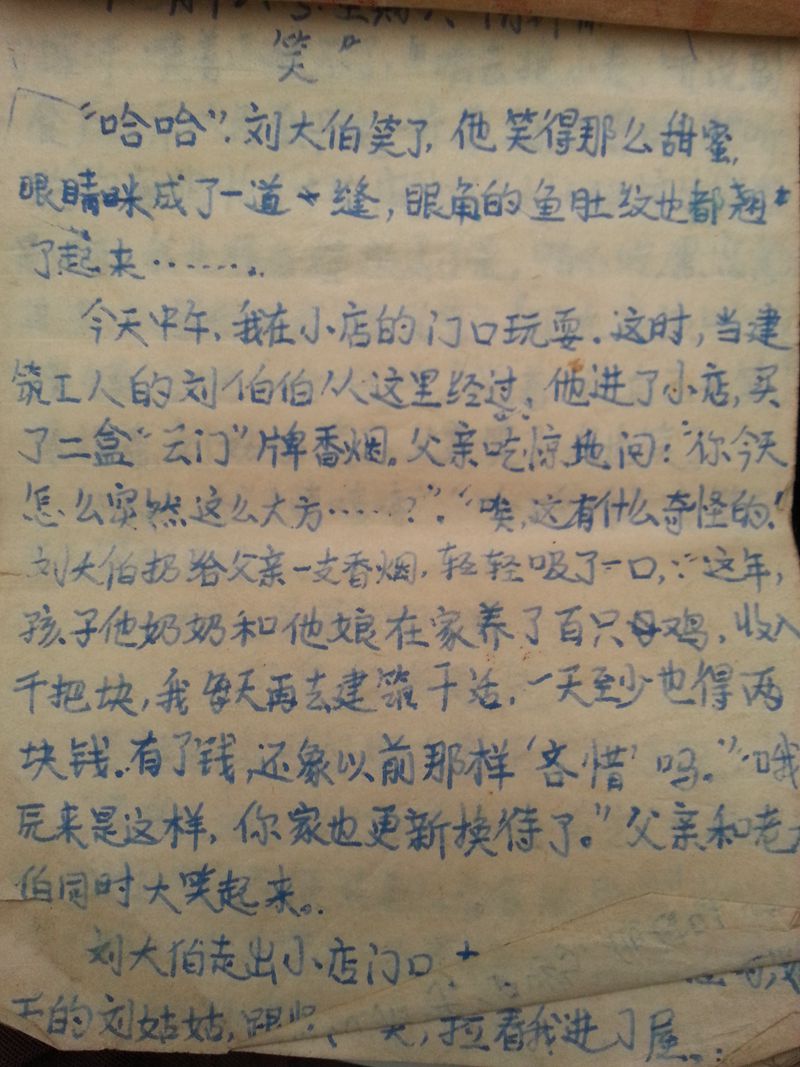 笑"
"哈哈".刘大伯笑了,他笑得那么甜蜜,
眼睛咪成了一道缝,眼角的鱼肚纹也都翘
了起来…….
今天中午,我在小店的门口玩耍.这时,当建
筑工人的刘伯伯从这里经过,他进了小店,买
了二盒"云门"牌香烟。父亲吃惊地问:"你今天
怎么突然这么大方……?"."唉,这有什么奇怪的!
刘大伯扔给父亲一支香烟,轻轻吸了一口,:"这年,
孩子他奶奶和他娘在家养了百只母鸡,收入
千把块,我每天再去建筑干活,一天至少也得两
块钱。有了钱,还象以前那样'吝惜'吗。""哦
玩来是这样,你家也更新换待了。"父亲和老大
伯同时大笑起来。
刘大伯走出小店门口
工的刘姑姑, 笑,拉着我进了屋。